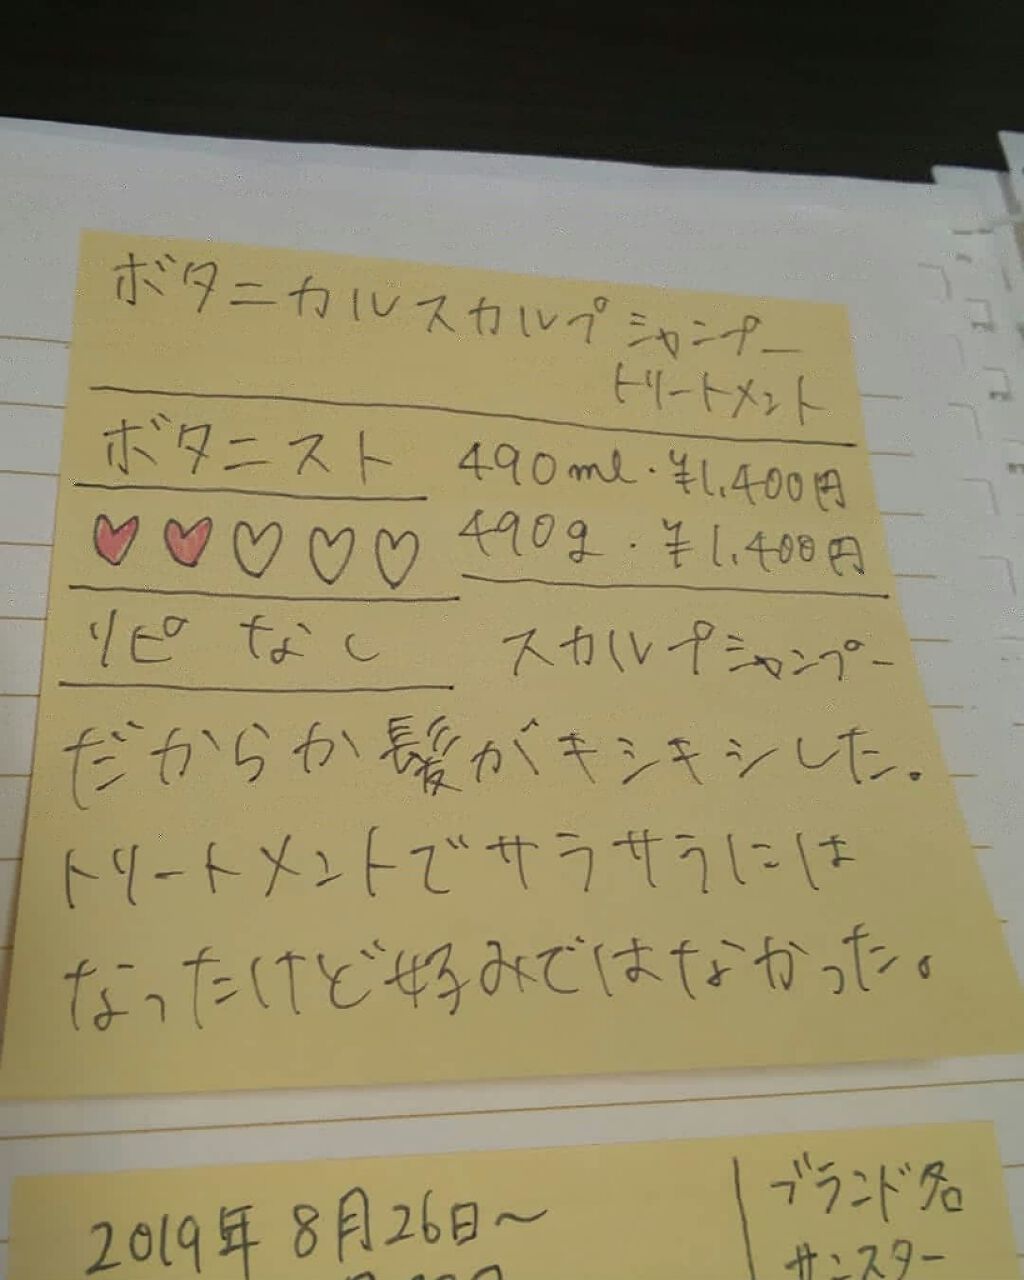 ボタニカルスカルプシャンプー
トリートメント
ボタニスト
490ml・¥1,400円
490g・¥1,400円
リピなし
スカルプシャンプー
だからか髪がキシキシした。
トリートメントでサラサラには
なったけど好みではなかった。
2019年8月26日〜
ブランド名
サンスター